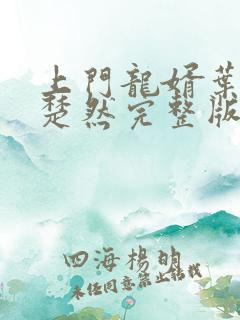 上門龍婿葉
楚然完整版
四海楊明
未经同意禁止转载